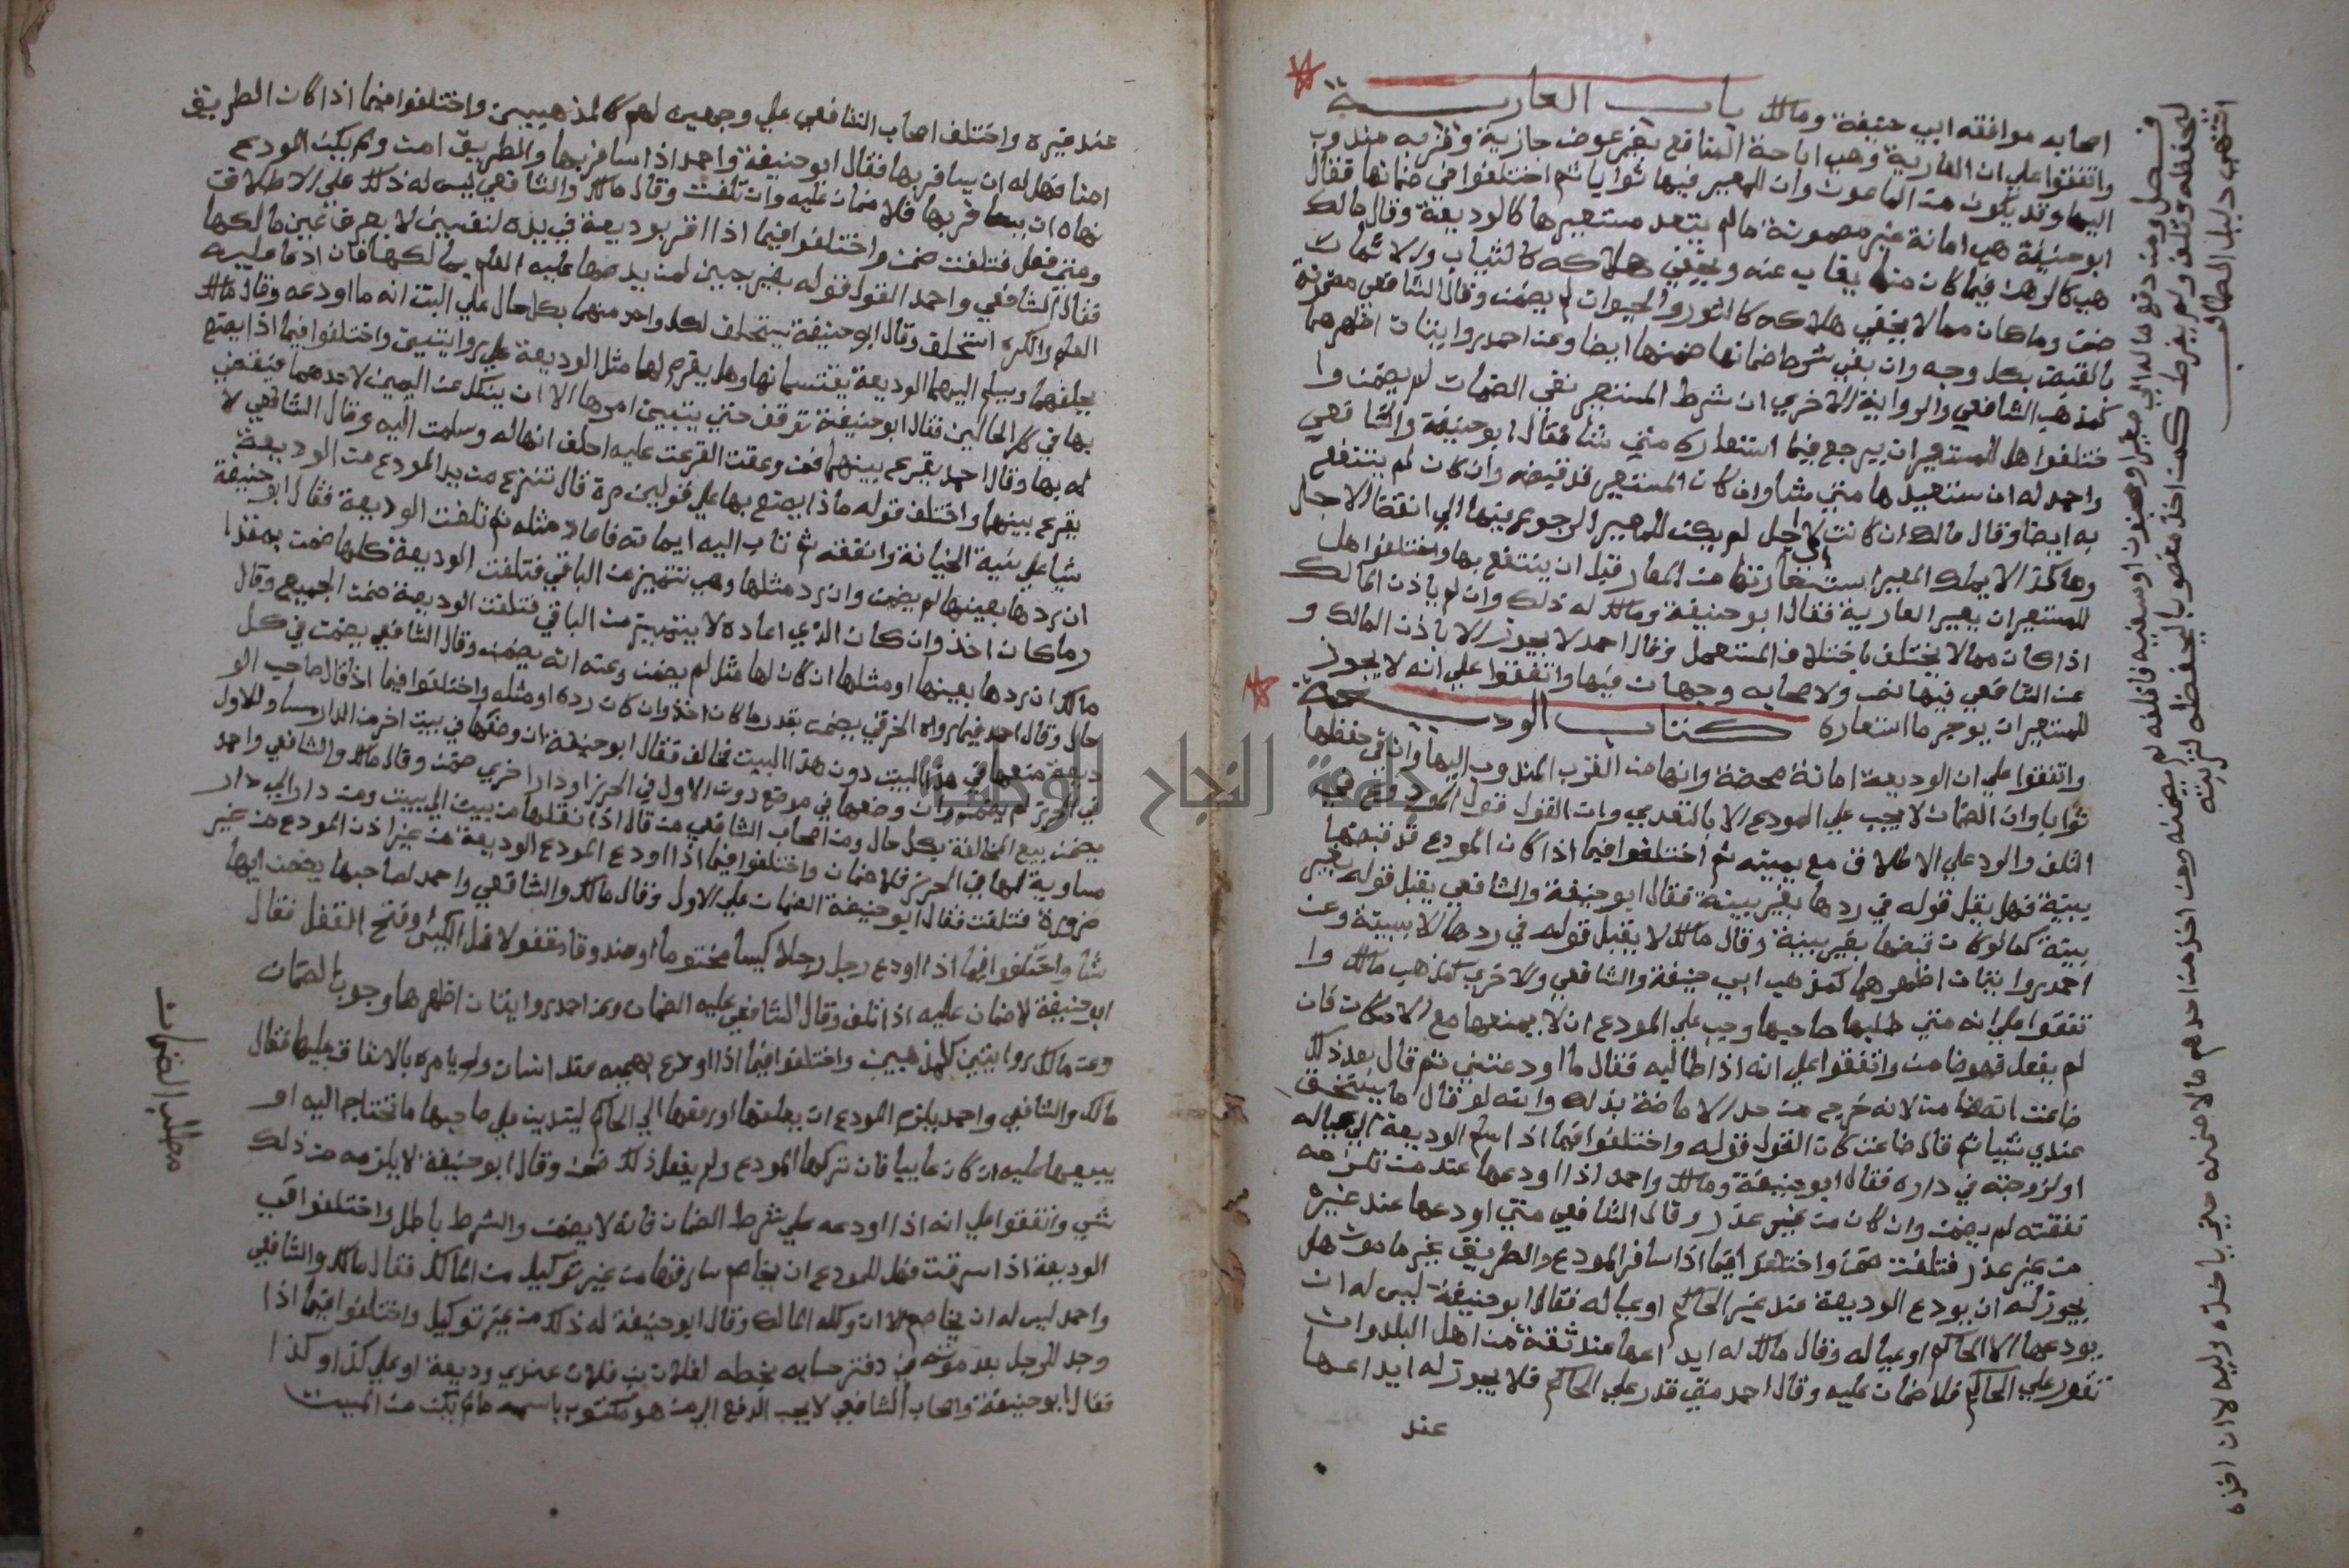 اصحابه موافقه ابي حنيفة ومالك باب العارية
واتفقوا علي ان العارية وهي اباحة المنافع بغير عوض جايزة وقربه مندوب
اليها وقد يكون من الماعون وان للمعير فيها ثوابا ثم اختلفوا في ضمانها فقال
ابو حنيفة هي امانة غير مضمونة ما لم يتعد مستعيرها كالوديعة وقال مالك
هي كالرهن فيما كان منها يغاب عنه ويخفي هلاكه كالثياب والاثمان
ضمن وما كان مما لا يخفي هلاكه كالدور والحيوان لم يضمن وقال الشافعي مضمونة
بالقيمة بكل وجه وان نفي شرط ضمانها ضمنها ايضا وعن احمد روايتان اظهرهما
كمذهب الشافعي والرواية الاخري ان شرط المستعير نفي الضمان لم يضمن وا
ختلفوا هل للمعير ان يرجع فيما استعاره متي شا فقال ابو حنيفة والشافعي
واحمد له ان يستعيدها متي شا وان كان المستعير قد قبضه وان كان لم ينتفع
به ايضا وقال مالك ان كانت الي اجل لم يكن للمعير الرجوع فيها الي انقضا الاجل
وهاكذا لا يملك المعير استعارتها من المعار قبل ان ينتفع بها واختلفوا هل
للمستعير ان يعير العارية فقال ابو حنيفة ومالك له ذلك وان لم ياذن المالك
اذا كان مما لا يختلف باختلاف المستعمل وقال احمد لا يجوز الا باذن المالك و
عن الشافعي فيها نص ولاصحابه وجهان فيها واتفقوا علي انه لا يجوز
للمستعير ان يوجر ما استعاره كتاب الوديعة
واتفقوا علي ان الوديعة امانة محضة وانها من القرب المندوب اليها وان في حفظها
ثوابا وان الضمان لا يجب علي المودع الا بالتعدي وان القول قول المودع في
التلف والرد علي الاطلاق مع يمينه ثم اختلفوا فيما اذا كان المودع قد قبضها
ببينة فهل يقبل قوله في ردها بغير بينة فقال ابو حنيفة والشافعي يقبل قوله بغير
بينة كما لو كان قبضها بغير بينة وقال مالك لا يقبل قوله في ردها الا ببينة وعن
احمد روايتان اظهرهما كمذهب ابي حنيفة والشافعي والاخري كمذهب مالك وا
تفقوا علي انه متي طلبها صاحبها وجب علي المودع ان لا يمنعها مع الامكان فان
لم يفعل فهو ضامن واتفقوا علي انه اذا طالبه فقال ما اودعتني ثم قال بعد ذلك
ضاعت انه ضامن لانه خرج من حد الامانة بذلك وانه لو قال ما يستحق
عندي شيا ثم قال ضاعت كان القول قوله واختلفوا فيما اذا سلم الوديعة الي عياله
او لزوجته في داره فقال ابو حنيفة ومالك واحمد اذا اودعها عند من تلزمه
نفقته لم يضمن وان كان من غير عذر وقال الشافعي متي اودعها عند غيره
من غير عذر فتلفت ضمن واختلفوا فيما اذا سافر المودع والطريق غير مامون هل
يجوز له ان يودع الوديعة عند غير الحاكم او عياله فقال ابو حنيفة ليس له ان
يودعها الا الحاكم او عياله وقال مالك له ايداعها عند ثقة من اهل البلد وان
قدر علي الحاكم فلا ضمان عليه وقال احمد متي قدر علي الحاكم فلا يجوز له ايداعها
عند
فصل ومن دفع ماله الي صغير او مجنون او سفيه فاتلفه لم يضمنه ومن اخذ من احدهم مالا ضمنه حتي ياخذه وليه لا ان اخذه
ليحفظه وتلف ولم يفرط كمن اخذ مغصوبا ليحفظه لربه
انتهي دليل الطالب
عند غيره واختلف اصحاب الشافعي علي وجهين لهم كالمذهبين واختلفوا فيما اذا كان الطريق
امنا فهل له ان يسافر بها فقال ابو حنيفة واحمد اذا سافر بها والطريق امن ولم يكن المودع
نهاه ان يسافر بها فلا ضمان عليه وان تلفت وقال مالك والشافعي ليس له ذلك علي الاطلاق
ومتي فعل فتلفت ضمن واختلفوا فيما اذا اقر بوديعة في يده لنفسين لا يعرف عين مالكها
فقال الشافعي واحمد القول قوله بغير يمين لمن يدعيها عليه العلم بمالكها فان ادعا عليه
العلم وانكره استحلف وقال ابو حنيفة يستحلف لكل واحد منهما بكل حال علي البت انه ما اودعه وقال مالك
يحلفهما ويسلم اليهما الوديعة يقتسمانها وهل يغرم لهما مثل الوديعة علي روايتين واختلفوا فيما اذا يصنع
بها في كلا الحالين فقال ابو حنيفة توقف حتي يتبين امرها الا ان ينكل عن اليمين لاحدهما فيقضي
له بها وقال احمد يقرع بينهما فمن وقعت القرعة عليه احلف انها له وسلمت اليه وقال الشافعي لا
يقرع بينهما واختلف قوله ماذا يصنع بها علي قولين مرة قال تنتزع من يد المودع من الوديعة
شيا علي نية الخيانة وانفقه ثم تاب اليه ايمانه فاعاد مثله ثم تلفت الوديعة فقال ابو حنيفة
ان ردها بعينها لم يضمن وان رد مثلها وهي تتميز من الباقي فتلفت الوديعة كلها ضمن بمقدا
رما كان اخذ وان كان الذي اعاده لا يتميز من الباقي فتلفت الوديعة ضمن الجميع وقال
مالك ان ردها بعينها او مثلها ان كان لها مثل لم يضمن وعنه انه يضمن وقال الشافعي يضمن في كل
حال وقال احمد فيما رواه الخرقي يضمن بقدر ما كان اخذ وان كان رده او مثله واختلفوا فيما اذا قال صاحب الو
ديعة ضعها في هذا البيت دون هذا البيت فخالف فقال ابو حنيفة ان وضعها في بيت اخر من الدار مساو للاول
في الحرز لم يضمن وان وضعها في موضع دون الاول في الحرز او دارا اخري ضمن وقال مالك والشافعي واحمد
يضمن مع المخالفة بكل حال ومن اصحاب الشافعي من قال اذا نقلها من بيت الي بيت ومن دار الي دار
مساوية لها في الحرز فلا ضمان واختلفوا فيما اذا اودع المودع الوديعة من غير اذن المودع من غير
ضرورة فتلفت فقال ابو حنيفة الضمان علي الاول وقال مالك والشافعي واحمد لصاحبها يضمن ايهما
شا واختلفوا فيما اذا اودع رجل رجلا كيسا مختوما او صندوقا مقفولا فحل الكيس او فتح القفل فقال
ابو حنيفة لا ضمان عليه اذا تلف وقال الشافعي عليه الضمان وعن احمد روايتان اظهرها وجوب الضمان
وعن مالك روايتين كالمذهبين واختلفوا فيما اذا اودع بهيمة عند انسان ولم يامره بالانفاق عليها فقال
مالك والشافعي واحمد يلزم المودع ان يعلفها او رفعها الي الحاكم ليتدين علي صاحبها ما تحتاج اليه او
يبيعها عليه ان كان غايبا فان تركها المودع ولم يفعل ذلك ضمن وقال ابو حنيفة لا يلزمه من ذلك
شي واتفقوا علي انه اذا اودعه علي شرط الضمان فانه لا يضمن والشرط باطل واختلفوا في
الوديعة اذا سرقت فهل للمودع ان يخاصم سارقها من غير توكيل من المالك فقال مالك والشافعي
واحمد ليس له ان يخاصم الا ان وكله المالك وقال ابو حنيفة له ذلك من غير توكيل واختلفوا فيما اذا
وجد للرجل بعد موته في دفتر حسابه بخطه لفلان بن فلان عندي وديعة او علي كذا وكذا
فقال ابو حنيفة واصحاب الشافعي لا يجب الدفع الي من هو مكتوب باسمه ما لم يكن من الميت
مطلب الضمان
جامعة النجاح الوطنية